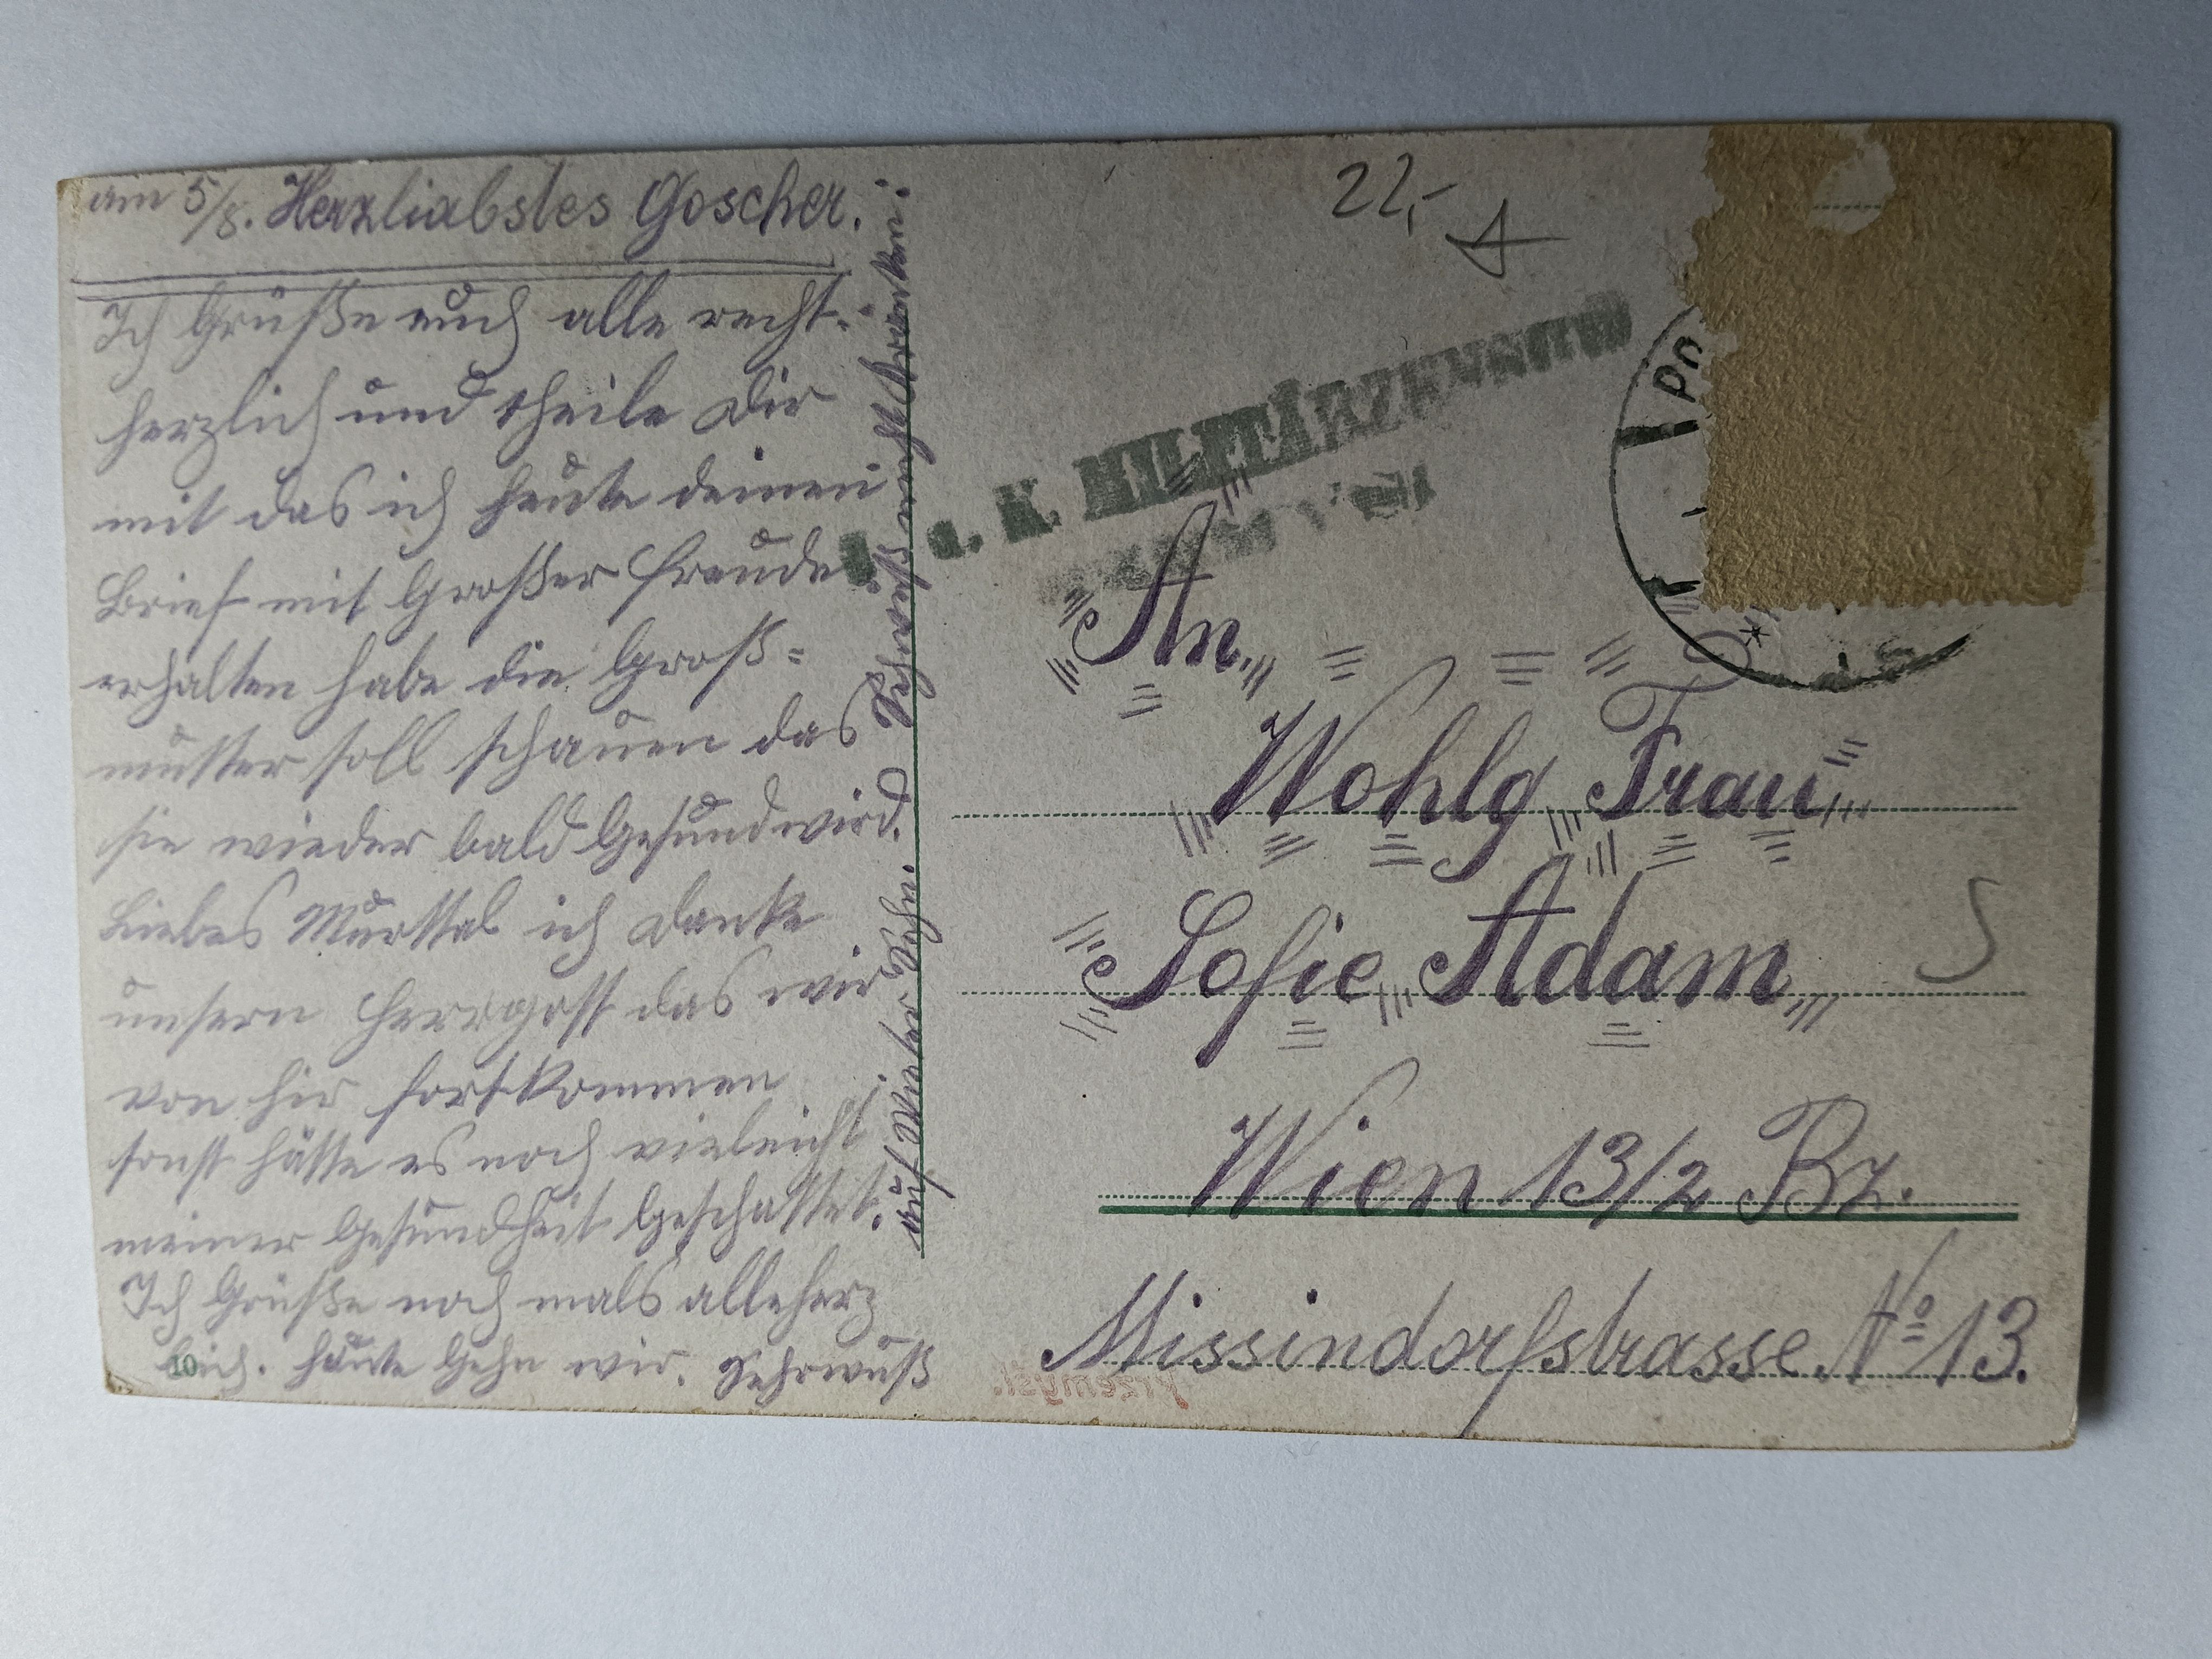 am 5/8. Herzliabstes Goscherl.
Ich Grüße euch alle recht-
herzlich und theile Dir
mit das ich heute deinen
Brief mit Großer Freude
erhalten habe die Groß=
mutter soll schauen das
sie wieder bald Gesund wird.
Liebes ich danke
unsern Herrgott das wir
von hir fortkommen
sonst hätte es noch vieleicht
meiner Gesundheit Geschattet.
Ich Grüße noch mals alle herz
lich. heute Gehn wir.
auf Wieder Sehn. nicht
22,-
K. u. K. MILITÄRZENSUR
PRZEMYŚL
An
Wohlg Frau
Sofie Adam
Wien 13/2 Bz.
Missindorfstrasse. No 13.
Przemyśl.
10